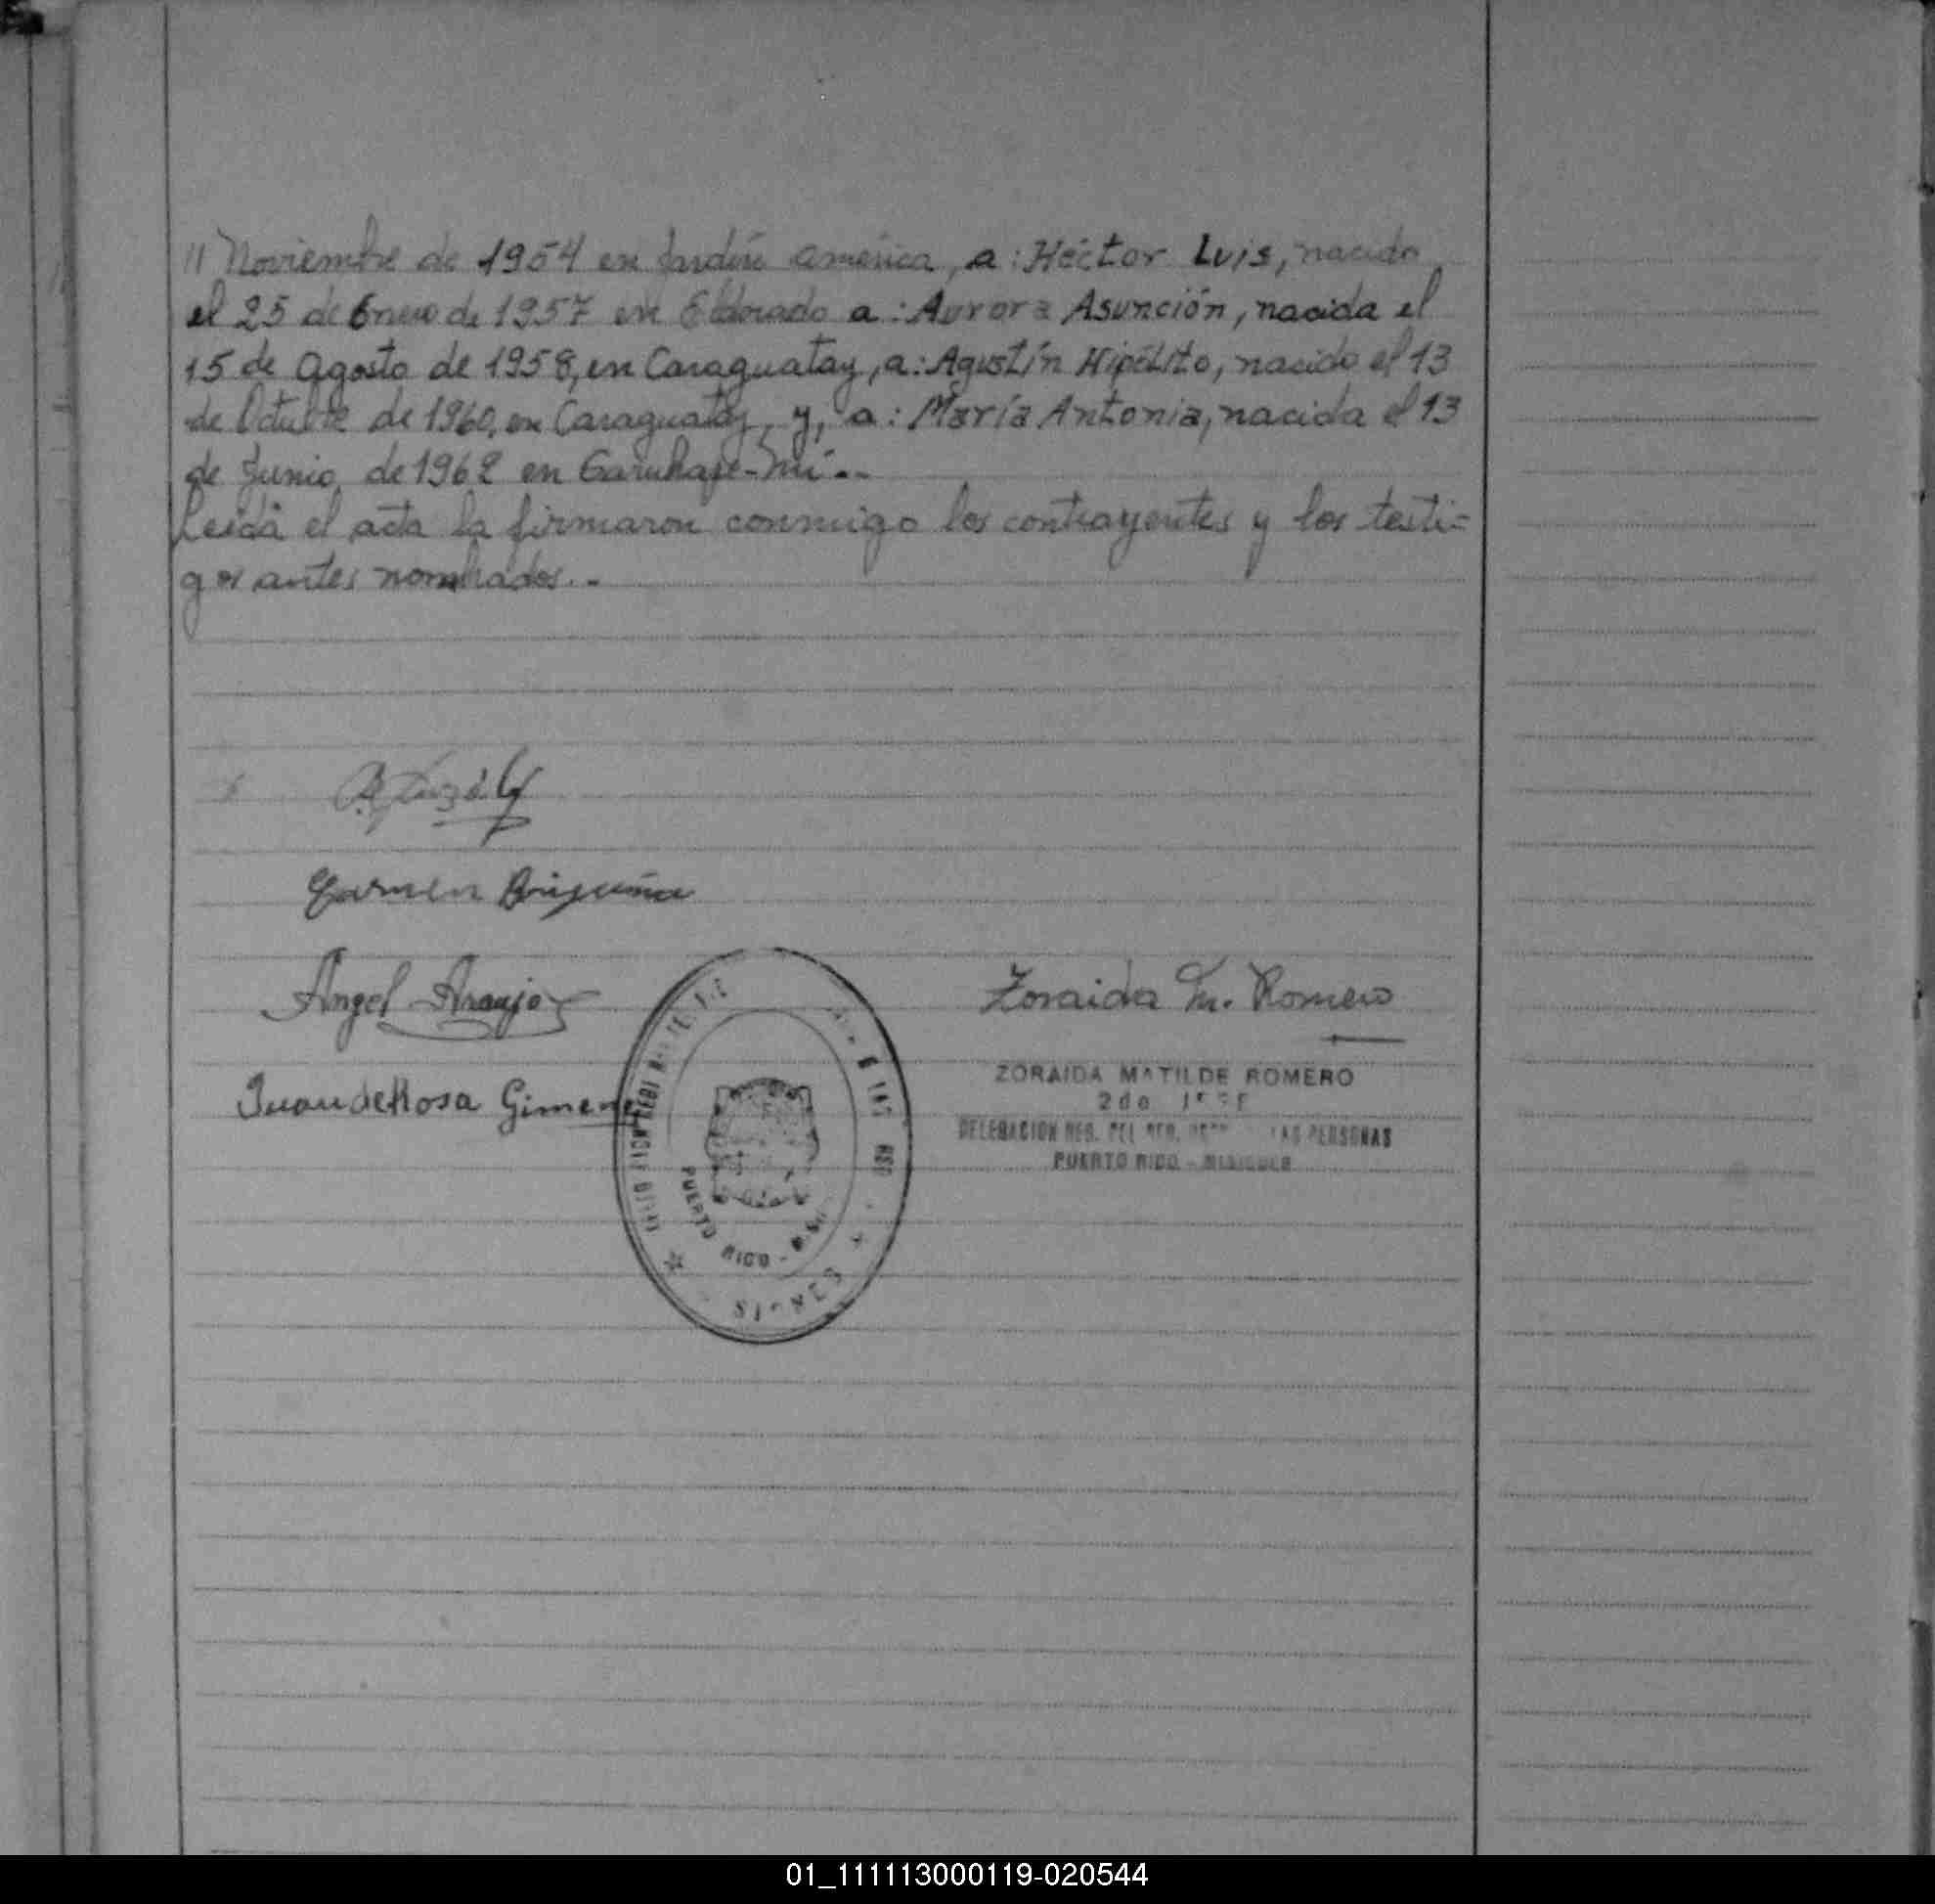 11 Noviembre de 1954 en Jardín América, a: Héctor Luis, nacido
el 25 de Enero de 1957 en Eldorado a: Aurora Asunción, nacida el
15 de Agosto de 1958, en Caraguatay, a: Agustín Hipólito, nacido el 13
de Octubre de 1960, en Caraguatay, y, a: María Antonia, nacida el 13
de Junio de 1962 en Garuhape-Mí.--
Leída el acta la firmaron conmigo los contrayentes y los testi=
gos antes nombrados.-
Carmen
Angel Araujo
Zoraida M. Romero
Juan de Rosa Gimenez
ZORAIDA MATILDE ROMERO
2do JEFE
DELEGACION REG. DEL LAS PERSONAS
PUERTO RICO - MISIONES
PUERTO RICO
01_111113000119-020544